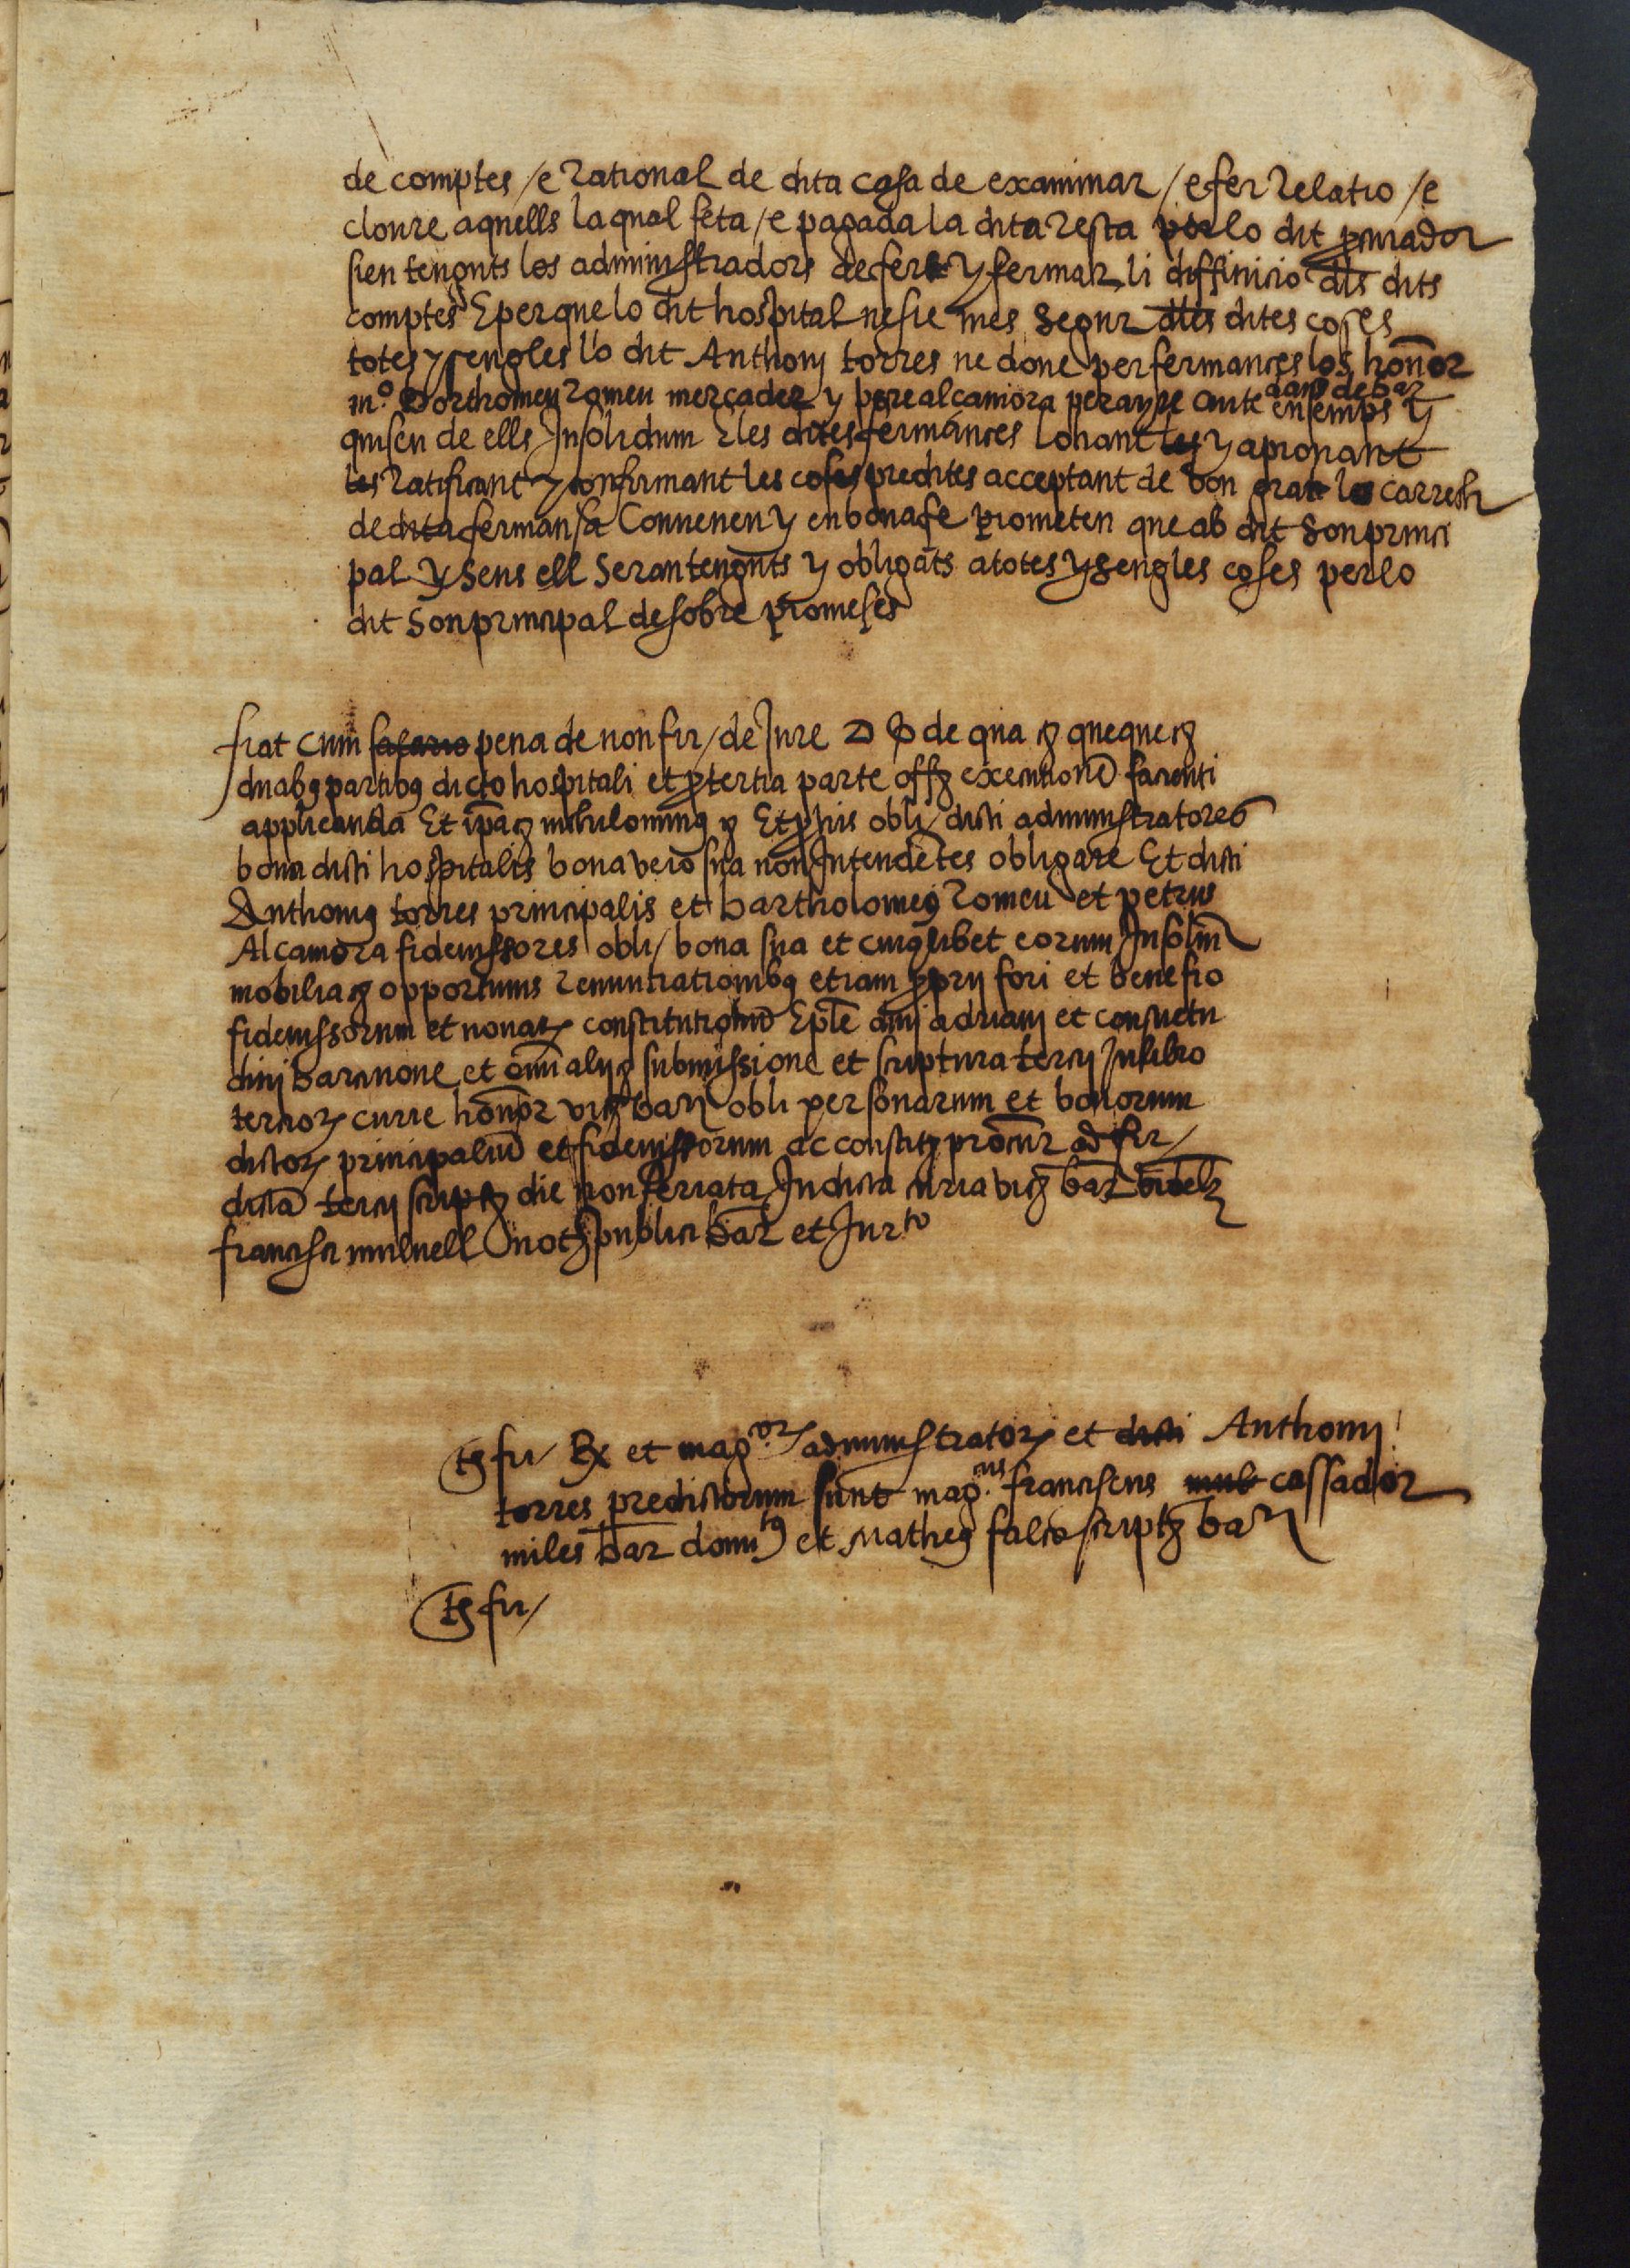 de comptes /e Rational de dita casa de examinar / e fer Relatio /e
cloure aquells la qual feta /e pagada la dita Resta per lo dit procurador
sien tenguts los administradors de fer y fermar li diffinicio dls dits
comptes E perque lo dit hospital ne sie mes Segur dles dites coses
totes y sengles lo dit Anthoni torres ne dona per fermances los honor
m.º Barthomeu Romeu mercader y pere alcamora perayre
ciutadans de bar
ensemps y
quiscu de ells Insolidum E les dites fermances lohant les y aprouant
les Ratificant y confirmant les coses predites acceptant de bon grat lo carrech
de dita fermansa Conuenen y en bona fe prometen que ab dit Son princi
pal y Sens ell Seran tenguts y obligats a totes y sengles coses per lo
dit Son principal desobre promeses
fiat cum salario pena de non fir / de Jure
duabq partibq dicto hospitali et p tertia parte offz exequtione facienti
applicanda Et ipaz nihilominq Et p his obli / dicti administratores
bona dicti hospitalis bona vero sua non Intendetes obligare Et dicti
Anthoniq torres principalis et bartholomeq Romeu et petrus
Alcamora fideiussores obli / bona sua et cuiqlibet eorum Insolm
mobilia opportunis Renuntiationibq etiam propry fori et benefio
fideiussorum et nouar constitutionu Eple diui adriani et consuetu
dini barcinone et omi alys submissione et scriptura tercy In libro
tercior curie honor vicz bar obli personarum et bonorum
dictor principaliu et fideiussorum ac constitz procur ad fir /
dicta tercy scriptz die non feriata In dicta curia vicz bar videlz
francisci mulnell notz publici bar et Jurto
ts fir / Rx et magor administrator et dicti Anthonij
torres predictorum sunt mag.cus franciscus mul cassador
miles bar domiq et Matheq falco scriptz bar
ts fir /